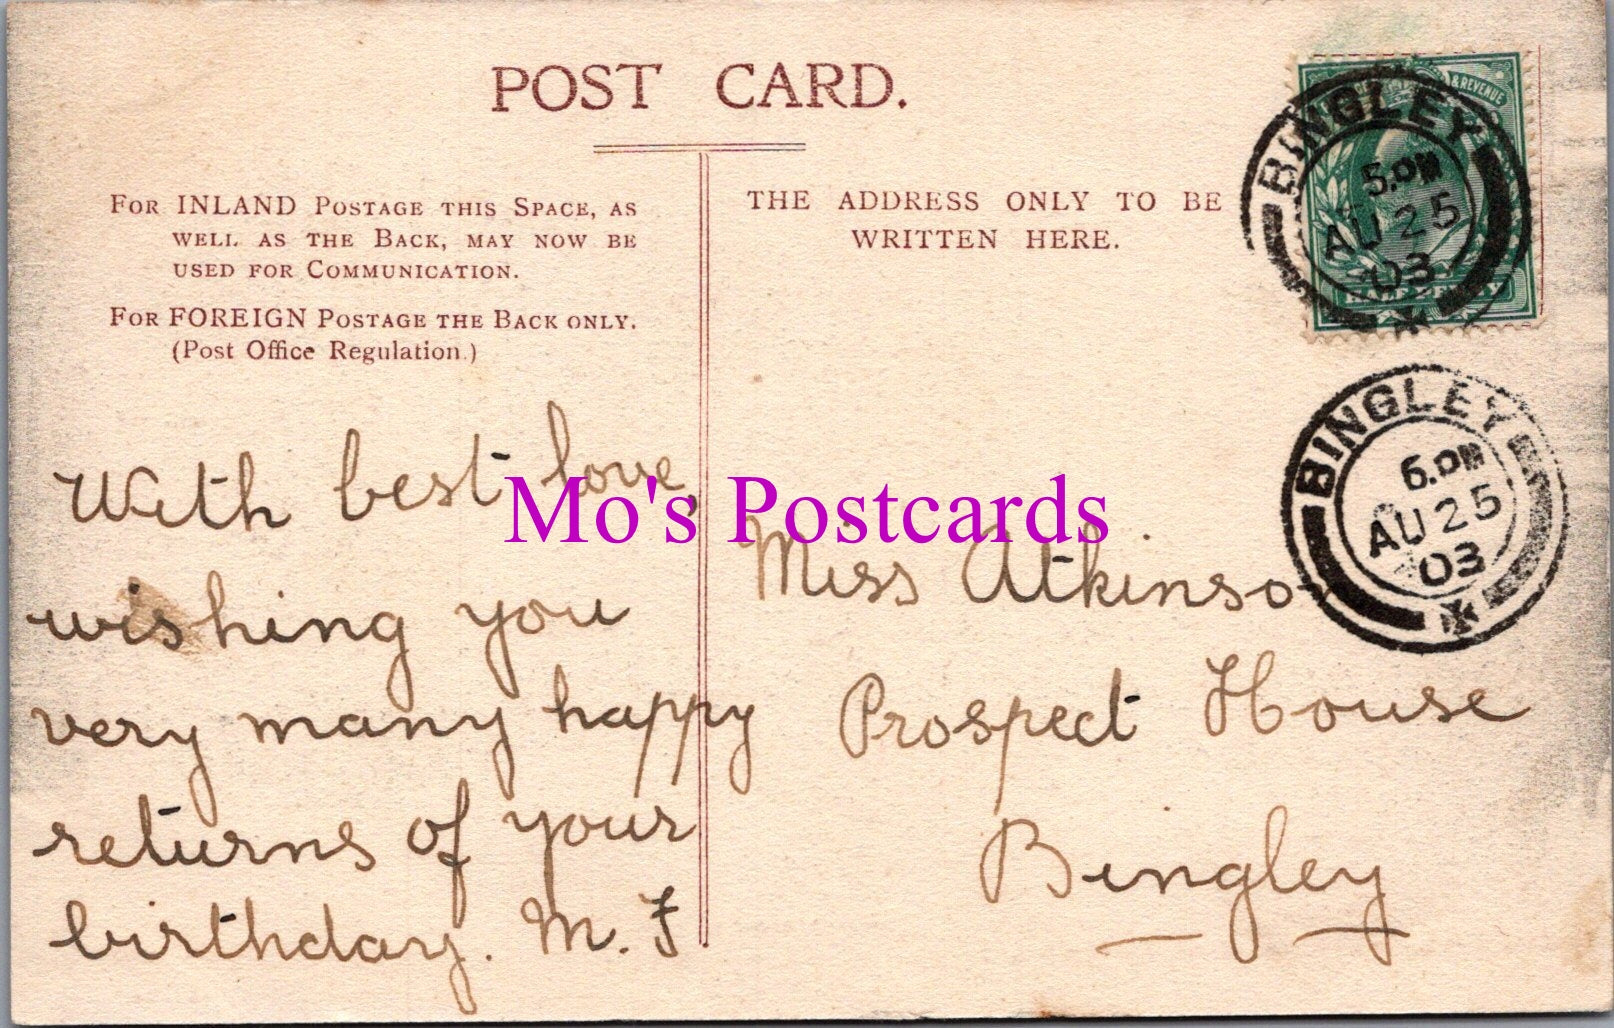 POST CARD.
For INLAND Postage this Space, as
well as the Back, may now be
used for Communication.
For FOREIGN Postage the Back only.
(Post Office Regulation.)
THE ADDRESS ONLY TO BE
WRITTEN HERE.
& REVENUE
HALFPENNY
BINGLEY
5.PM
AU 25
03
BINGLEY
6.PM
AU 25
03
With best love,
wishing you
very many happy
returns of your
birthday. M. F
Mo's Postcards
Miss Atkinson
Prospect House
Bingley